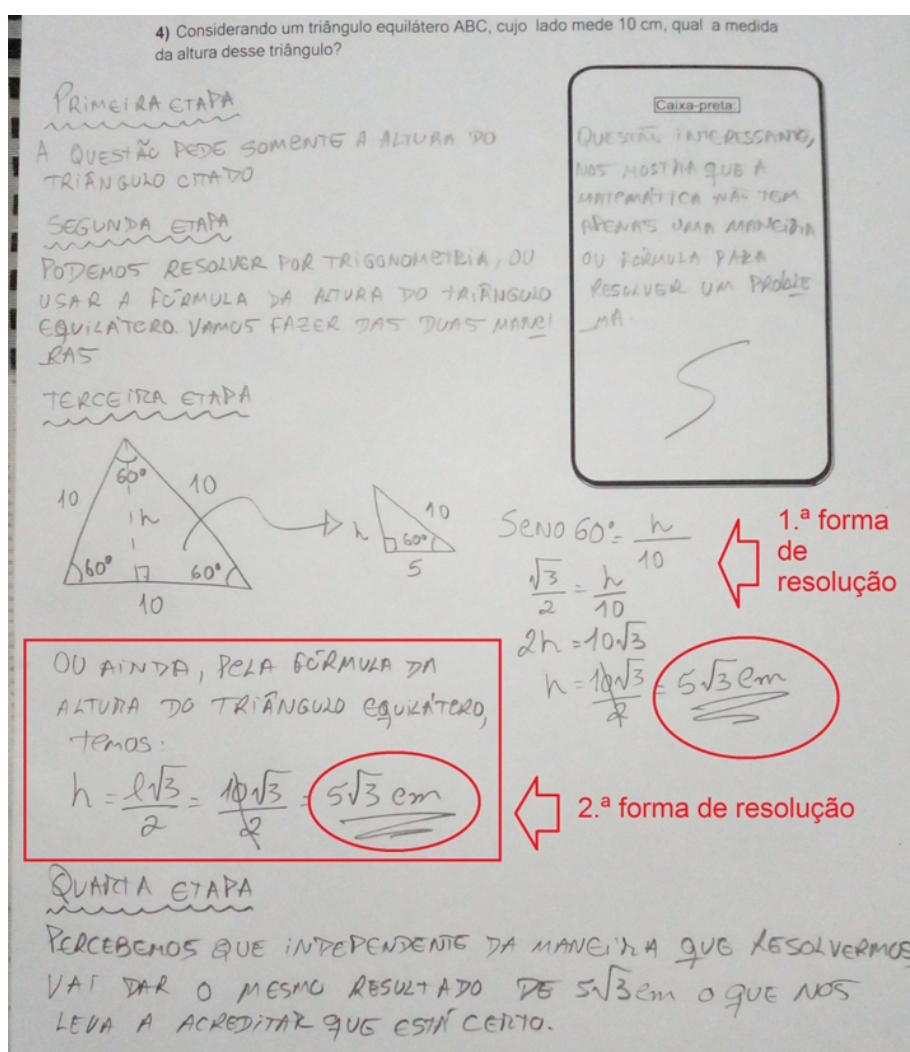 4) Considerando um triângulo equilátero ABC, cujo lado mede 10 cm, qual a medida
da altura desse triângulo?
PRIMEIRA ETAPA
A QUESTÃO PEDE SOMENTE A ALTURA DO
TRIÂNGULO CITADO
SEGUNDA ETAPA
PODEMOS RESOLVER POR TRIGONOMETRIA, OU
USAR A FÓRMULA DA ALTURA DO TRIÂNGULO
EQUILÁTERO. VAMOS FAZER DAS DUAS MANEI
RAS
Caixa-preta:
QUESTÃO INTERESSANTE,
NOS MOSTRA QUE A
MATEMÁTICA NÃO TEM
APENAS UMA MANEIRA
OU FÓRMULA PARA
RESOLVER UM PROBLE
MA.
S
TERCEIRA ETAPA
60°
10
10
h
60°
60°
10
h
10
60°
5
SENO 60° = h/10
√3/2 = h/10
2h = 10√3
h = 10√3/2 = 5√3 cm
1.ª forma
de
resolução
OU AINDA, PELA FÓRMULA DA
ALTURA DO TRIÂNGULO EQUILÁTERO,
temos:
h = l√3/2 = 10√3/2 = 5√3 cm
2.ª forma de resolução
QUARTA ETAPA
PERCEBEMOS QUE INDEPENDENTE DA MANEIRA QUE RESOLVERMOS
VAI DAR O MESMO RESULTADO DE 5√3 cm O QUE NOS
LEVA A ACREDITAR QUE ESTÁ CERTO.